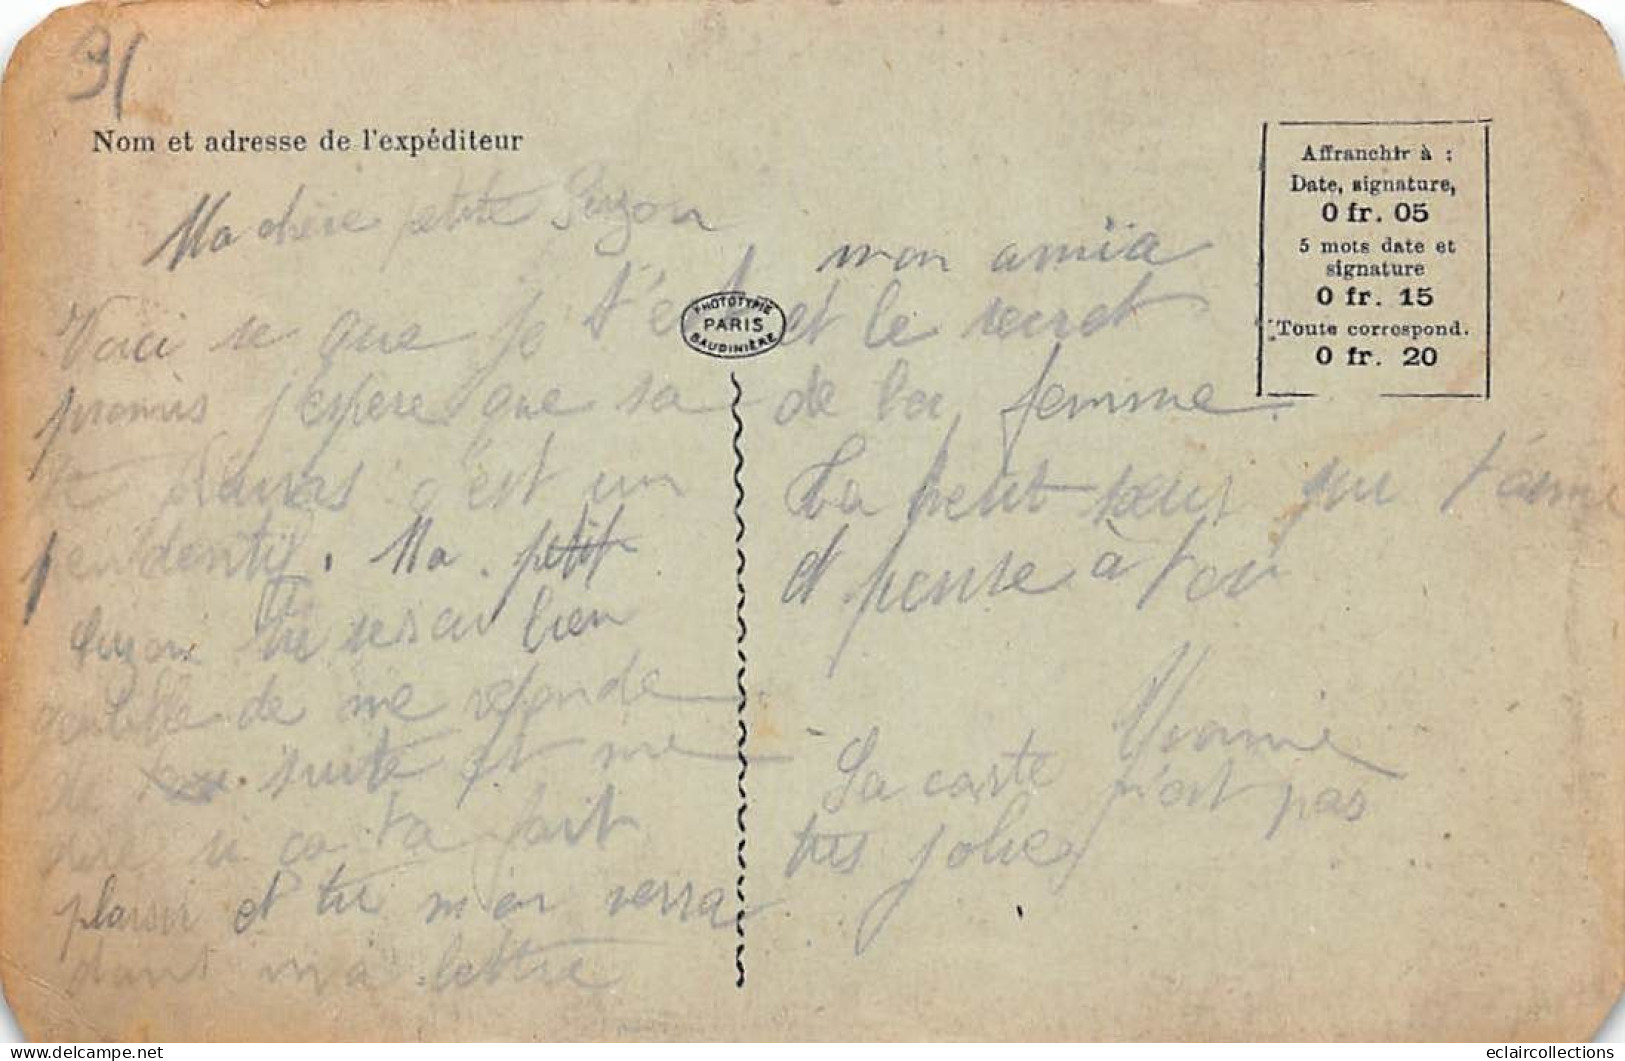 91
Nom et adresse de l'expéditeur
Affranchir à :
Date, signature,
0 fr. 05
5 mots date et
signature
0 fr. 15
Toute correspond.
0 fr. 20
PHOTOTYPIE
PARIS
BAUDINIÈRE
Ma chère petite Suzon
Voici se que je t'est
promis j'espere que sa
te plairas c'est un
pendentif. Ma petit
Suzon tu serai bien
gentille de me reponde
de suite et me
dire si ça ta fait
plaisir et tu m'en verra
dant ma lettre
mon amïa
et le secret
de la femme.
La petit seur qui t'aime
et pense à toi
La carte n'est pas
très jolie
eclaircollections